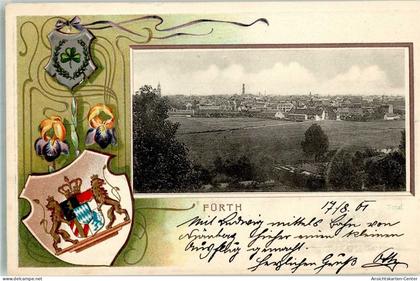 FÜRTH
17/8.01
Mit Ludwig mittels Bahn von
Nürnberg hieher einen kleinen
Ausflug gemacht.
Herzlichen Gruß Otto
Ansichtskarten-Center